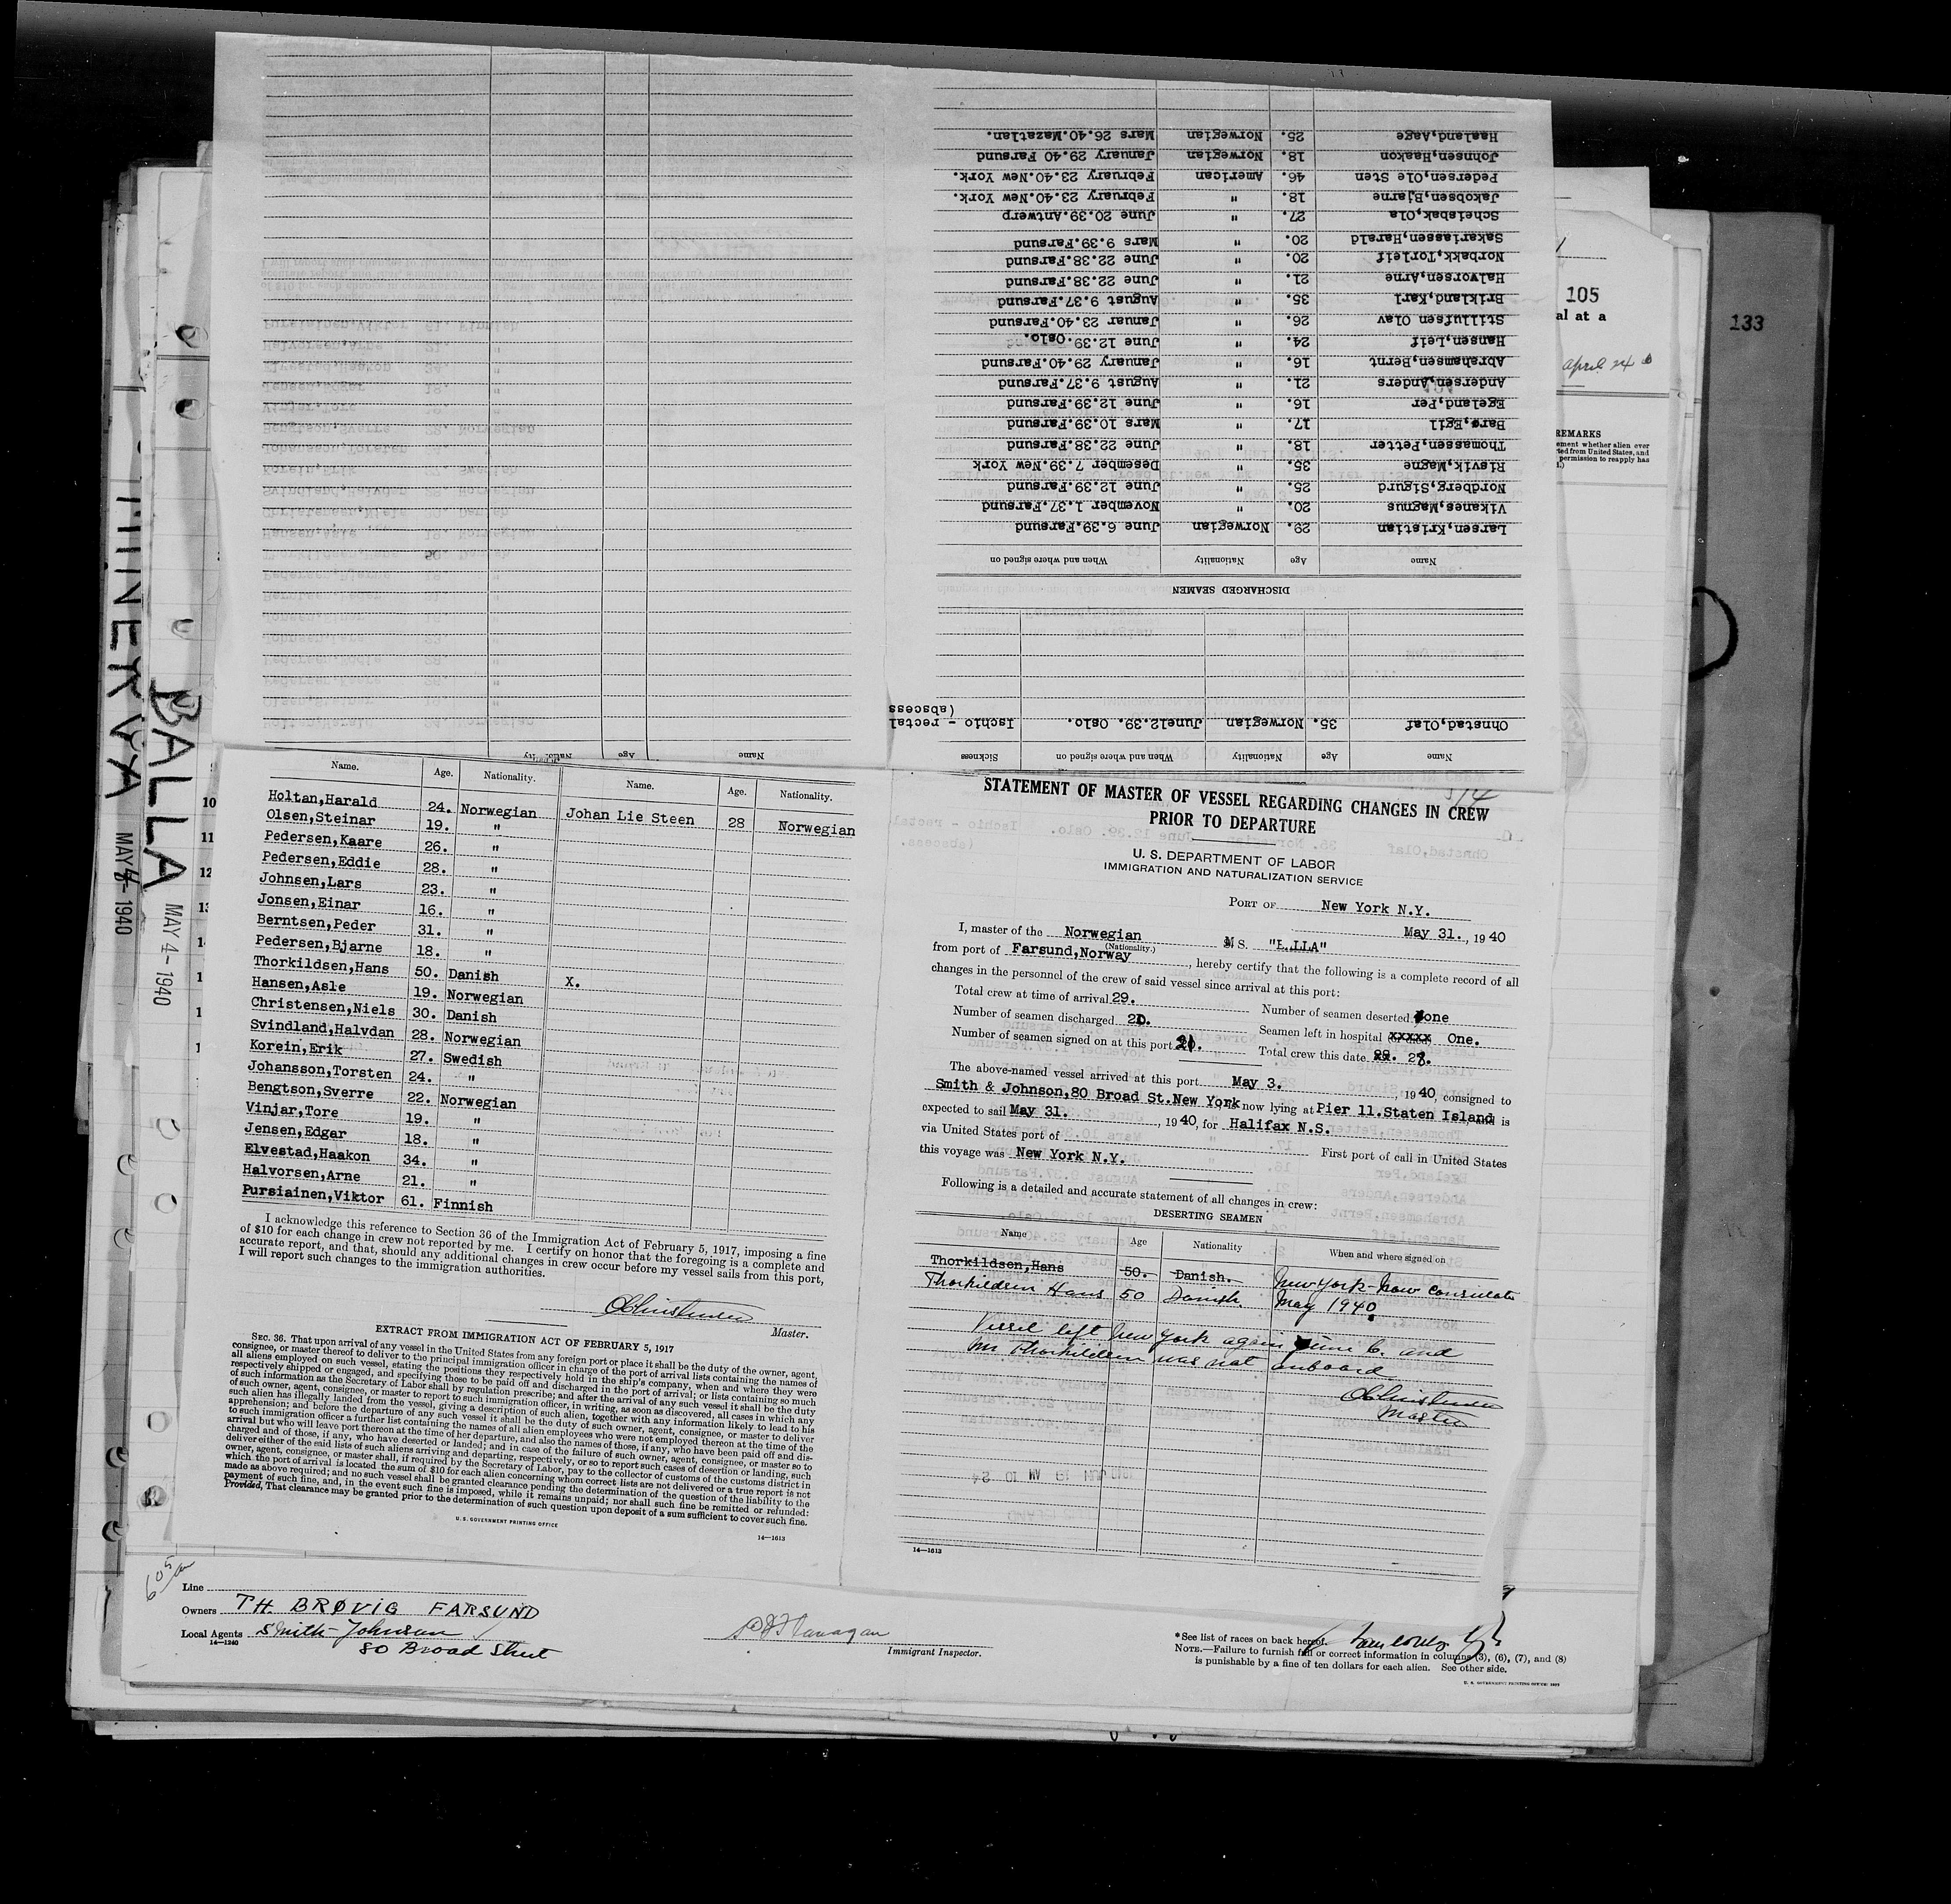 DISCHARGED SEAMEN
Name Age Nationality When and where signed on
Larsen,Kristian 29. Norwegian June 6.39.Farsund
Vikanes,Magnus 20. " November 1.37.Farsund
Nordberg,Sigurd 25. " June 12.39.Farsund
Risvik,Magne 35. " Desember 7.39.New York
Thomassen,Petter 18. " June 22.38.Farsund
Barø,Egil 17. " Mars 10.39.Farsund
Egeland,Per 16. " June 12.39.Farsund
Andersen,Anders 21. " August 9.37.Farsund
Abrahamsen,Bernt 16. " January 29.40.Farsund
Hansen,Leif 24. " June 12.39.Oslo.
Stillufsen Olav 26. " Januar 23.40.Farsund
Brikland,Karl 35. " August 9.37.Farsund
Halvorsen,Arne 21. " June 22.38.Farsund
Norbakk,Torleif 20. " June 22.38.Farsund
Sakariassen,Harald 20. " Mars 9.39.Farsund
Scheisbak,Ola 27. " June 20.39.Antwerp
Jakobsen,Bjarne 18. " February 23.40.New York.
Pedersen,Ole Sten 46. American February 23.40.New York.
Johnsen,Haakon 18. Norwegian January 29.40 Farsund
Haaland,Aage 25. Norwegian Mars 26.40.Mazatlan.
Name Age Nationality When and where signed on Sickness
Ohnstad,Olaf 35. Norwegian June12.39. Oslo. Ischio - rectal
(abscess
Name Age Nationality
MINERVA MAY 4- 1940
BALLA MAY 4- 1940
105
al at a
April 24
133
REMARKS
Name. Age. Nationality. Name. Age. Nationality.
Holtan,Harald 24. Norwegian Johan Lie Steen 28 Norwegian
Olsen,Steinar 19. "
Pedersen,Kaare 26. "
Pedersen,Eddie 28. "
Johnsen,Lars 23. "
Jonsen,Einar 16. "
Berntsen,Peder 31. "
Pedersen,Bjarne 18. "
Thorkildsen,Hans 50. Danish X.
Hansen,Asle 19. Norwegian
Christensen,Niels 30. Danish
Svindland,Halvdan 28. Norwegian
Korein,Erik 27. Swedish
Johansson,Torsten 24. "
Bengtson,Sverre 22. Norwegian
Vinjar,Tore 19. "
Jensen,Edgar 18. "
Elvestad,Haakon 34. "
Halvorsen,Arne 21. "
Pursiainen,Viktor 61. Finnish
I acknowledge this reference to Section 36 of the Immigration Act of February 5, 1917, imposing a fine
of $10 for each change in crew not reported by me. I certify on honor that the foregoing is a complete and
accurate report, and that, should any additional changes in crew occur before my vessel sails from this port,
I will report such changes to the immigration authorities.
Master.
EXTRACT FROM IMMIGRATION ACT OF FEBRUARY 5, 1917
SEC. 36. That upon arrival of any vessel in the United States from any foreign port or place it shall be the duty of the owner, agent,
consignee, or master thereof to deliver to the principal immigration officer in charge of the port of arrival lists containing the names of
all aliens employed on such vessel, stating the positions they respectively hold in the ship's company, when and where they were
respectively shipped or engaged, and specifying those to be paid off and discharged in the port of arrival; or lists containing so much
of such information as the Secretary of Labor shall by regulation prescribe; and after the arrival of any such vessel it shall be the duty
of such owner, agent, consignee, or master to report to such immigration officer, in writing, as soon as discovered, all cases in which any
such alien has illegally landed from the vessel, giving a description of such alien, together with any information likely to lead to his
apprehension; and before the departure of any such vessel it shall be the duty of such owner, agent, consignee, or master to deliver
to such immigration officer a further list containing the names of all alien employees who were not employed thereon at the time of the
arrival but who will leave port thereon at the time of her departure, and also the names of those, if any, who have been paid off and dis-
charged and of those, if any, who have deserted or landed; and in case of the failure of such owner, agent, consignee, or master so to
deliver either of the said lists of such aliens arriving and departing, respectively, or so to report such cases of desertion or landing, such
owner, agent, consignee, or master shall, if required by the Secretary of Labor, pay to the collector of customs of the customs district in
which the port of arrival is located the sum of $10 for each alien concerning whom correct lists are not delivered or a true report is not
made as above required; and no such vessel shall be granted clearance pending the determination of the question of the liability to the
payment of such fine, and, in the event such fine is imposed, while it remains unpaid; nor shall such fine be remitted or refunded:
Provided, That clearance may be granted prior to the determination of such question upon deposit of a sum sufficient to cover such fine.
U. S. GOVERNMENT PRINTING OFFICE 14—1613
STATEMENT OF MASTER OF VESSEL REGARDING CHANGES IN CREW
PRIOR TO DEPARTURE
U. S. DEPARTMENT OF LABOR
IMMIGRATION AND NATURALIZATION SERVICE
PORT OF New York N.Y.
May 31., 1940
I, master of the Norwegian M S.
(Nationality.)
from port of Farsund,Norway, hereby certify that the following is a complete record of all
changes in the personnel of the crew of said vessel since arrival at this port:
Total crew at time of arrival 29. Number of seamen deserted one
Number of seamen discharged 20. Seamen left in hospital xxxxx One.
Number of seamen signed on at this port Total crew this date 28.
The above-named vessel arrived at this port May 3., 1940, consigned to
Smith & Johnson,80 Broad St.New York now lying at Pier 11.Staten Island and is
expected to sail May 31., 1940, for Halifax N.S.
via United States port of First port of call in United States
this voyage was New York N.Y.
Following is a detailed and accurate statement of all changes in crew:
DESERTING SEAMEN
Name Age Nationality When and where signed on
Thorkildsen,Hans 50. Danish. New York - Now Consulate
Thorkildsen Hans 50 Danish. May 1940.
Vessel left New York again June 6. and
Mr Thorkildsen was not onboard
Master
14—1613
Line
Owners TH. BRØVIG FARSUND
Local Agents Smith-Johnson
14—1240
80 Broad Street
Immigrant Inspector.
*See list of races on back hereof.
NOTE.—Failure to furnish full or correct information in columns (3), (6), (7), and (8)
is punishable by a fine of ten dollars for each alien. See other side.